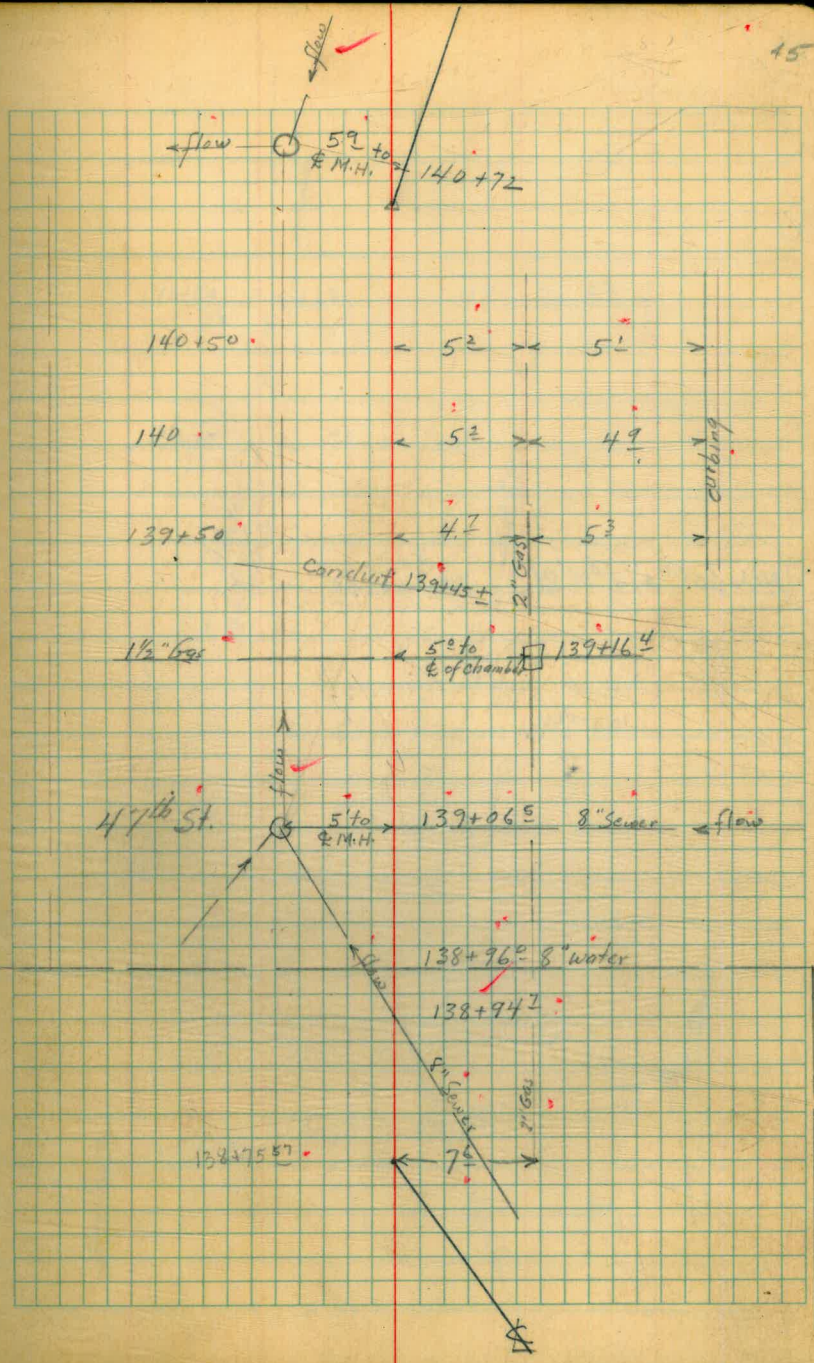 45
flow
flow
5 9 to
℄ M.H.
140+72
140+50
5 2
5 1
140
5 2
4 9
curbing
139+50
4. 7
5 3
2" Gas
Conduit 139+45 ±
1½" Gas
5 0 to
℄ of chamber
139+16 4
flow
47th St.
5' to
℄ M.H.
139+06 5
8" Sewer
flow
flow
138+96 0 8" water
138+94 7
8" Sewer
2" Gas
138+75 57
7 6